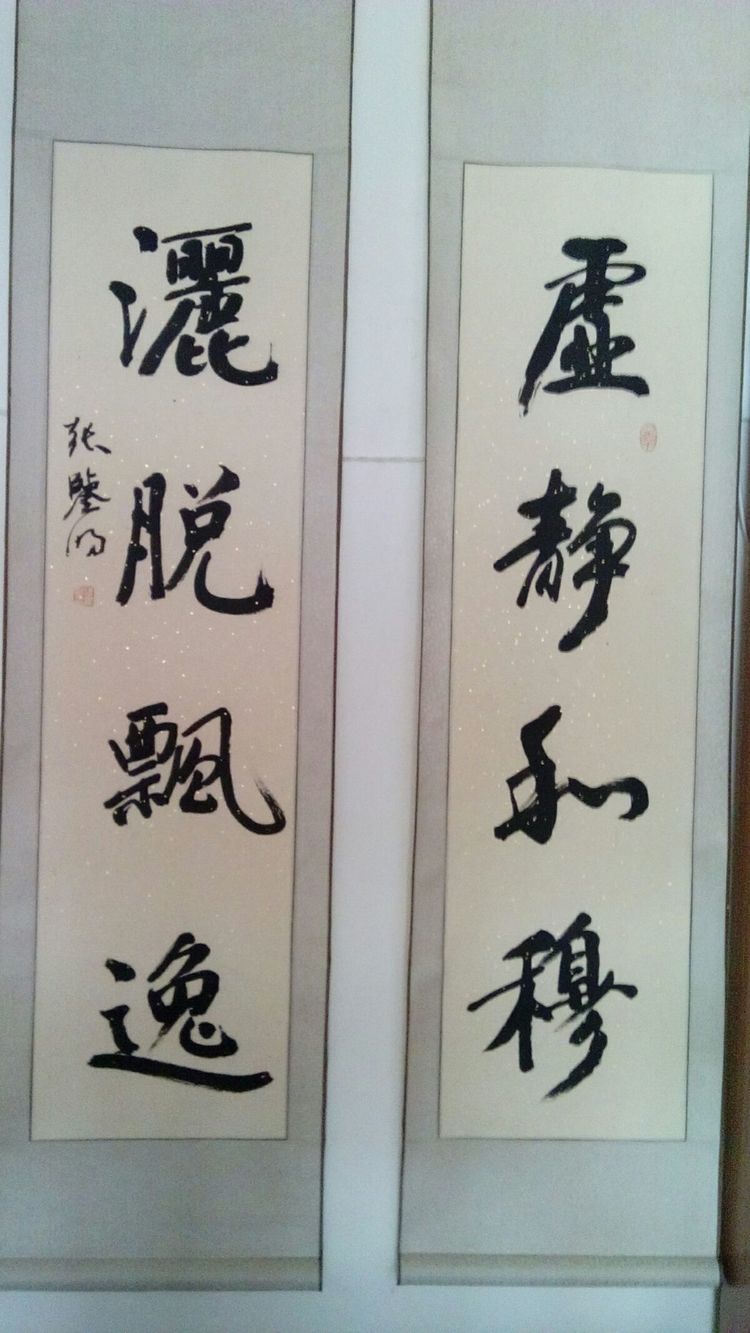 虛靜和穆
灑脫飄逸
张鑒明